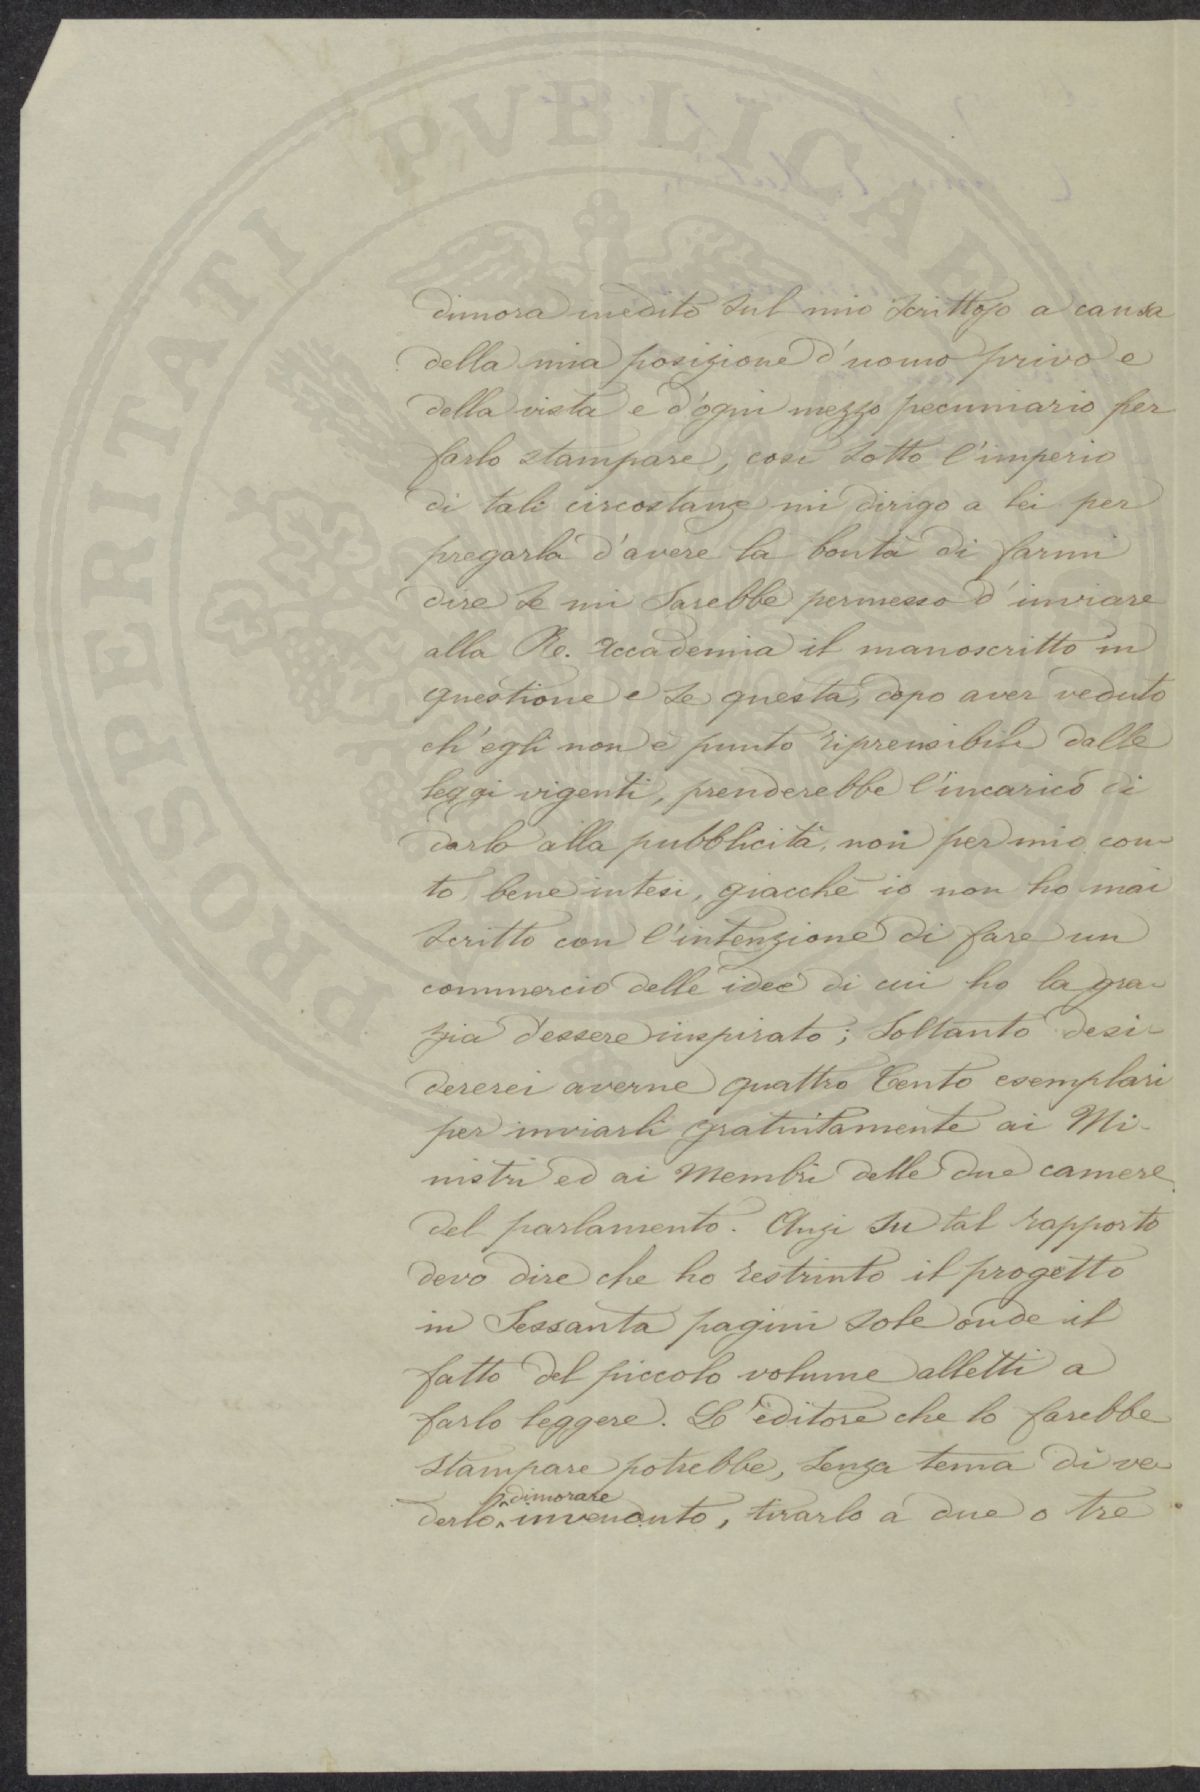 PROSPERITATI PVBLICAE
dimora inedito sul mio scrittojo a causa
della mia posizione d'uomo privo e
della vista e d'ogni mezzo pecuniario per
farlo stampare, così sotto l'imperio
di tali circostanze mi dirigo a lei per
pregarla d'avere la bontà di farmi
dire se mi sarebbe permesso d'inviare
alla Re. Accademia il manoscritto in
questione e se questa, dopo aver veduto
ch'egli non è punto riprensibile dalle
leggi vigenti, prenderebbe l'incarico di
darlo alla pubblicità, non per mio con-
to, bene intesi, giacchè io non ho mai
scritto con l'intenzione di fare un
commercio delle idee di cui ho la gra-
zia d'essere inspirato; soltanto desi-
dererei averne quattro Cento esemplari
per inviarli gratuitamente ai Mi-
nistri ed ai Membri delle due camere
del parlamento. Anzi su tal rapporto
devo dire che ho restrinto il progetto
in Sessanta pagini sole onde il
fatto del piccolo volume alletti a
farlo leggere. L'editore che lo farebbe
stampare potrebbe, senza tema di ve-
dimorare
derlo invenduto, tirarlo a due o tre